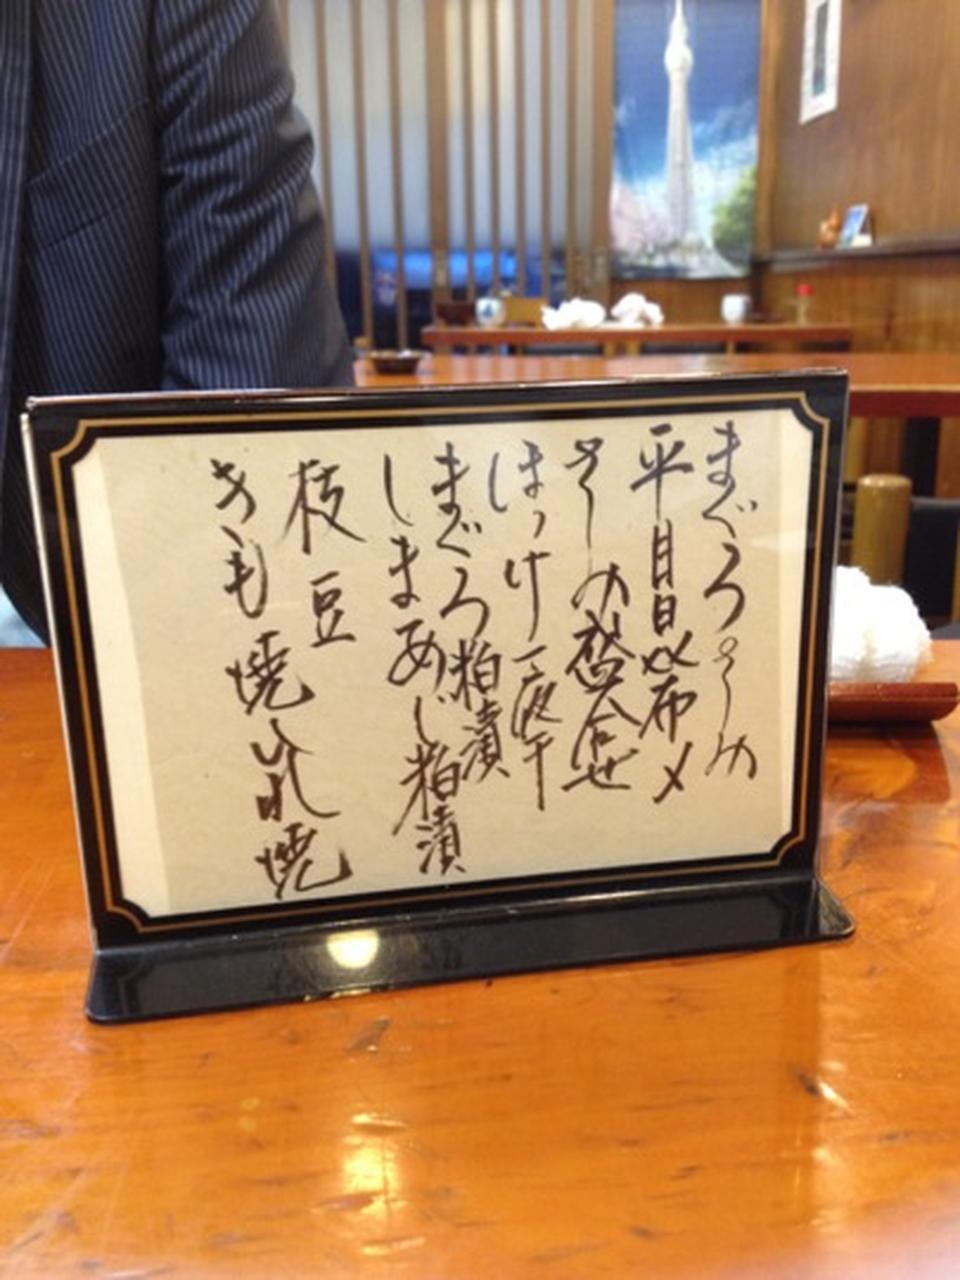 まぐろさしみ
平目昆布〆
さしみ盛合せ
ほっけ一夜干
まぐろ粕漬
しまあじ粕漬
枝豆
きも焼ひれ焼